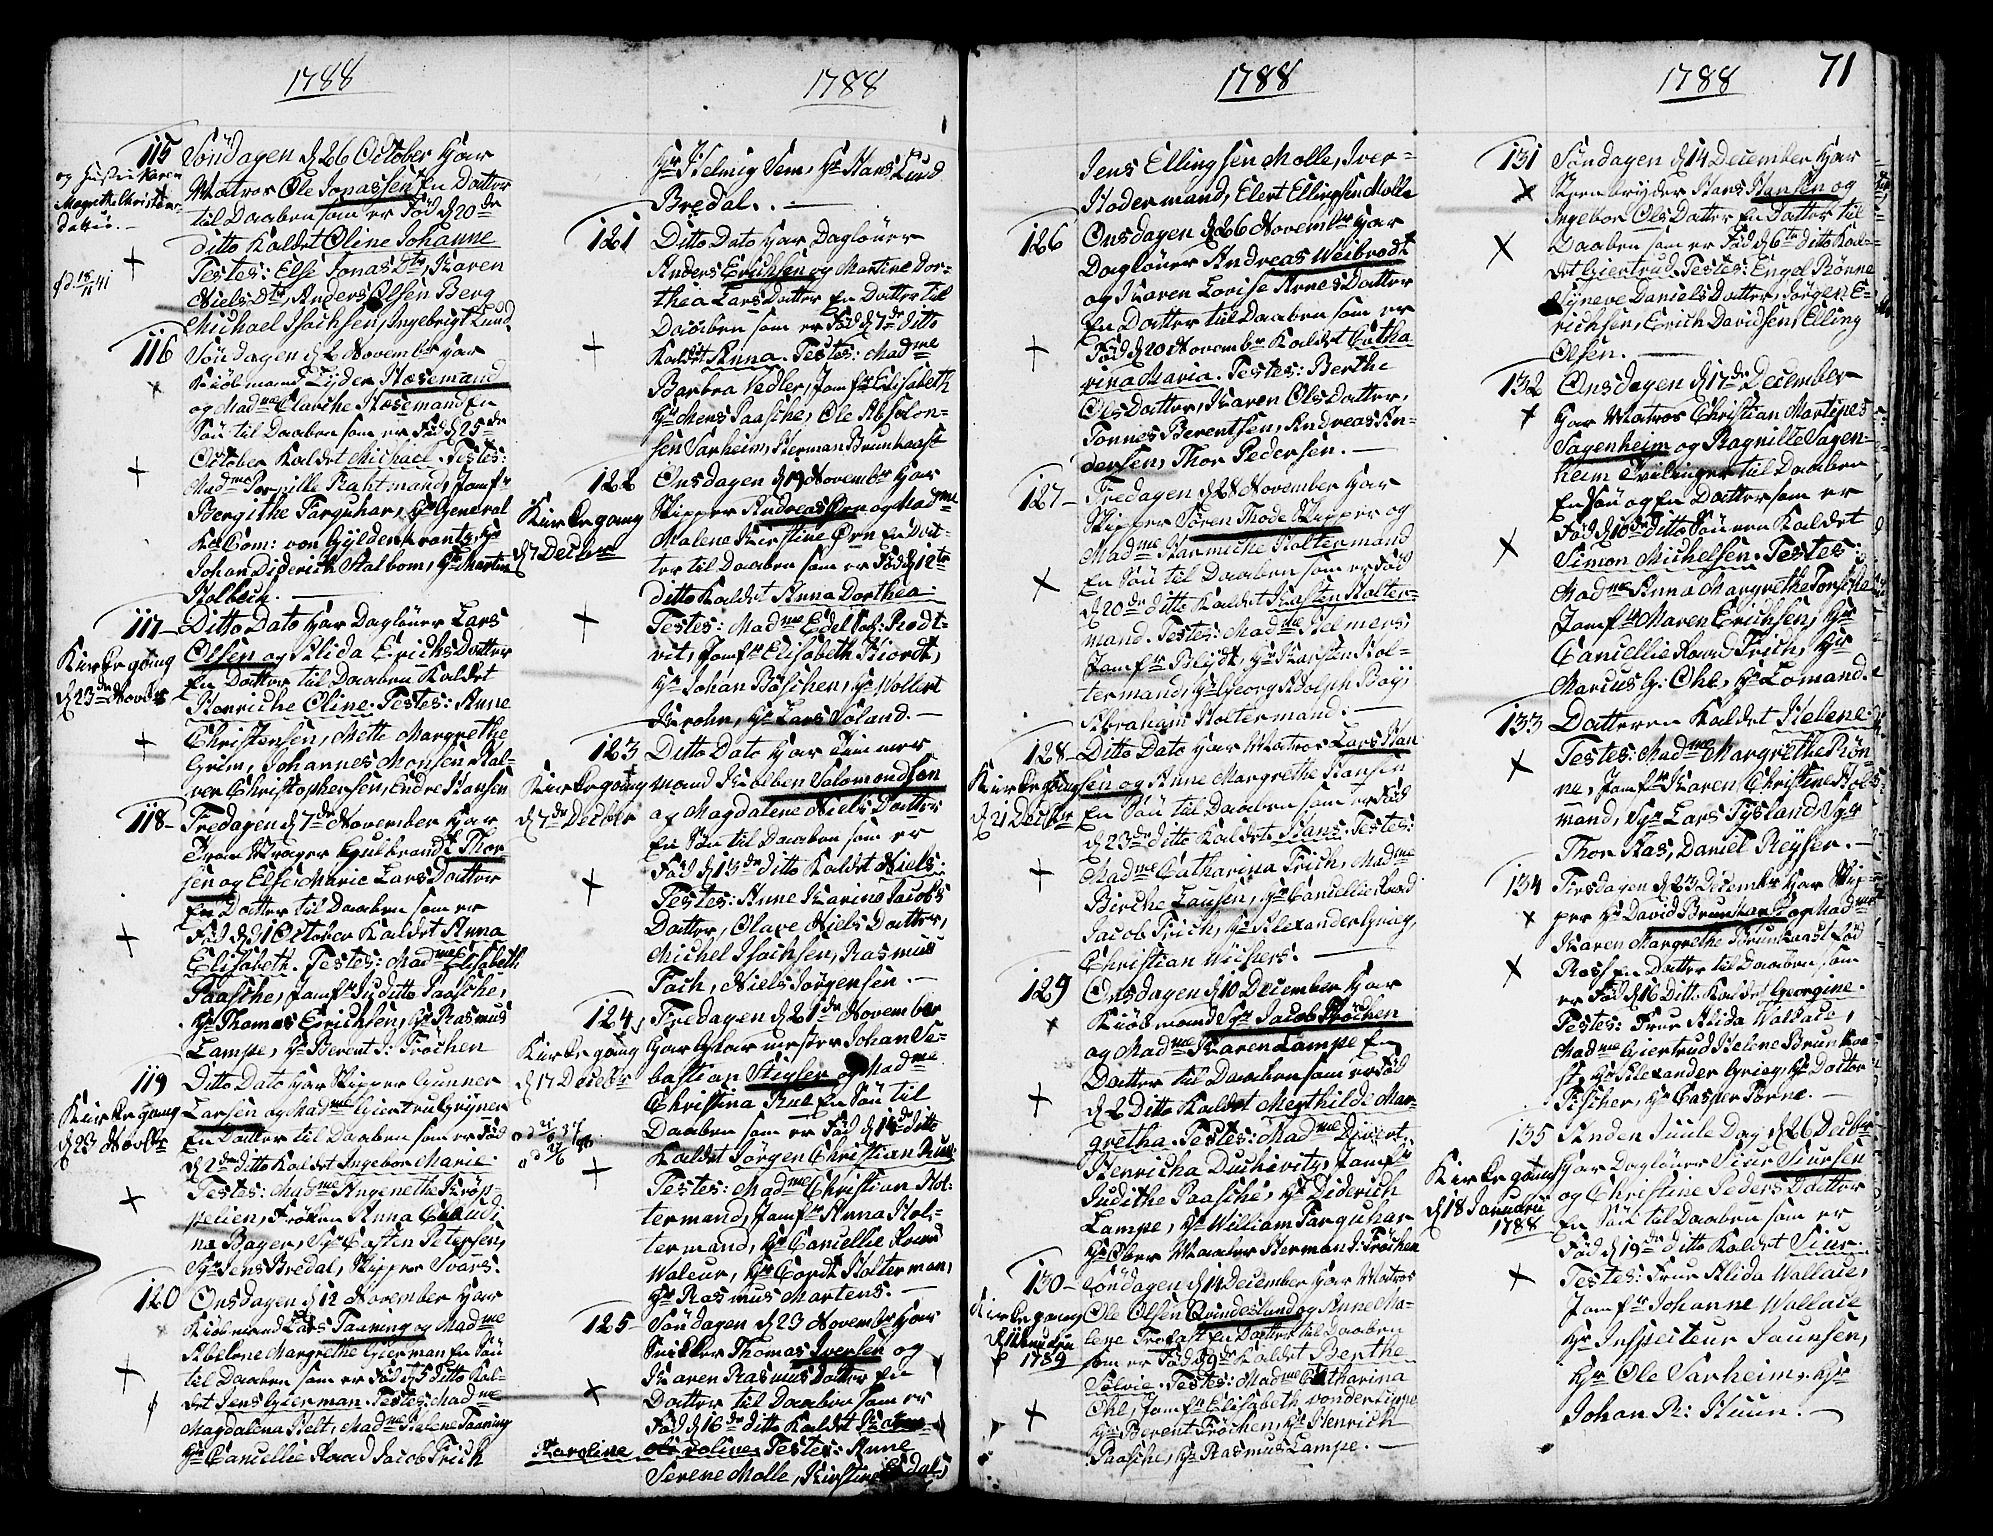 1788
115 Söndagen d 26 October har
Matros Ole Jonassen En Datter
til Daaben som er Fød d 20de
ditto Kaldet Oline Johanne
Testes: Else Jonas Dtr, Karen
Niels Dtr, Anders Olsen Berg
Michael Isachsen, Ingebrigt Lund
og Hustru Karen
Magrethe Christens
datter.
116 Söndagen d 2 November har
Kiöbmand Lyder Hæsemand
og Madme Clarche Hæsemand En
Sön til Daaben som er Fød d 25de
October Kaldet Michael. Testes:
Madme Pernille Rahtmand, Jomfr
Bergithe Farquhar, Hr General
Kr Com: von Gyldenkrantz, Hr
Johan Diderich Stalbom, Hr Martin
Holbech.
117 Ditto Dato har Daglöner Lars
Olsen og Alida Erichs Datter
En Datter til Daaben Kaldet
Henriche Oline. Testes: Anne
Christensen, Mette Margrethe
Grim, Johannes Monsen Hal-
ver Christophersen, Endre Hansen
Kirkegang
d 23de Novbr
118 Fredagen d 7de November har
Dran Drager Gulbrandt Thor
sen og Else Marie Lars Datter
En Datter til Daaben som er
Fød d 31 October Kaldet Anna
Elisabeth. Testes: Madme Elisabeth
Paasche, Jomfr Juditte Paasche,
Hr Thomas Erichsen, Hr Rasmus
Lampe, Hr Berent J: Fröchen
119 Ditto Dato har Skipper Gunner
Larsen og Madme Giertru Gryner
En Datter til Daaben som er Fød
d 2de ditto Kaldet Ingebor Marie.
Testes: Madme Angenethe Kröp-
pelien, Fröken Anna Claudi
na Bager, Sr Casten Petersen,
Sr Jens Bredal, Skipper Svårs.
Kirkegang
d 23 Novbr
120 Onsdagen d 12 November har
Kiöbmand Lars Taaning og Madme
Abelone Margrethe Gierman En Sön
til Daaben som er Fød d 5 Ditto Kal-
det Jens Gierman. Testes: Madme
Magdalena Helt, Madme Helene Taaning
Hr Cancellie Raad Jacob Frich
1788
Hr J: Helmig Sem, Hr Hans Lund
Bredal.
121 Ditto Dato har Daglöner
Anders Erichsen og Martine Dor-
thea Lars Datter En Datter til
Daaben som er Fød d 7de ditto
Kaldet Anna. Testes: Madme
Barbra Vedler, Jomfr Elisabeth
Hr Mens Paasche, Ole Absolon-
sen Varheim, Herman Brunkaast
122 Onsdagen d 19 Novembr har
Skipper Andreas Örn og Madme
Malena Kirstine Örn En Dat-
ter til Daaben som er Fød d 12te
ditto Kaldet Anna Dorthea.
Testes: Madme Edel Sah: Rodt-
vit, Jomfr Elisabeth Fiordt,
Hr Johan Böschen, Hr Wollert
Krohn, Hr Lars Soland.
Kirkegang
d 7 Decbr
123 Ditto Dato har Timmer
mand Kolben Salomondsen
og Magdalene Niels Datter
En Sön til Daaben som er
Fød d 13de ditto Kaldet Niels.
Testes: Anne Karine Jacobs
Datter, Olave Niels Datter,
Michel Isachsen, Rasmus
Foch, Niels Jörgensen.
Kirkegang
d 7de Decbr
124 Fredagen d 21de November
har Glarmester Johan Se-
bastian Stigler og Madme
Christina Rul En Sön til
Daaben som er Fød d 14de ditto
Kaldet Jörgen Christian Rul.
Testes: Madme Christian Hol-
termand, Jomfr Anna Hol-
termand, Hr Cancellie Raad
Waleur, Hr Cordt Holterman,
Hr Rasmus Martens.
Kirkegang
d 17 Decbr
125 Söndagen d 23 November har
Snikker Thomas Iversen og
Karen Rasmus Datter En
Datter til Daaben som er
Fød d 16de ditto Kaldet
Karoline Testes: Anne
Serene Molle, Kirstine
1788
Jens Ellingsen Molle, Iver
Hodermand, Elert Ellingsen Molle
126 Onsdagen d 26 Novembr har
Daglöner Andreas Weibrodt
og Karen Lovise Arnes Datter
En Datter til Daaben som er
Fød d 20 Novembr Kaldet Catha-
rina Maria. Testes: Berthe
Ols Datter, Karen Ols Datter,
Tonnes Berentsen, Andreas An-
dersen, Thor Pedersen.
127 Fredagen d 28 November har
Skipper Sören Thode Skipper og
Madme Harmiche Holtermand
En Sön til Daaben som er Fød
d 20de ditto Kaldet Karsten Holter-
mand. Testes: Madme Helmers,
Jomfr Blydt, Hr Karsten Hol-
termand, Hr Georg Adolph Boy,
Abraham Holtermand.
128 Ditto Dato har Matros Lars Han
sen og Anne Margrethe Hansen
En Sön til Daaben som er Fød
d 23de ditto Kaldet Hans. Testes:
Madme Catharina Frich, Madme
Birche Lausen, Hr Cancellie Raad
Jacob Frich, Hr Alexander Grieg,
Christian Wichers.
Kirkegang
d 21 Decbr
129 Onsdagen d 10 December har
Kiöbmand Sr Jacob Fröchen
og Madme Karen Lampe En
Datter til Daaben som er Fød
d 2 Ditto Kaldet Mechthildi Mar-
gretha. Testes: Madme Divert
Henricha Duchevitz, Jomfr
Judithe Paasche, Hr Diderich
Lampe, Hr William Farquhar
Hr Ober Maaler Herman J: Fröchen
130 Söndagen d 14 December har Matros
Ole Olsen Qvindesland og Anne Ma-
lene Trofast En Datter til Daaben
som er Fød d 9de Kaldet Berthe
Solvie. Testes: Madme Catharina
Ohl, Jomfr Elisabeth von der Lippe
Hr Berent Fröchen, Hr Henrich
Paasche, Hr Rasmus Lampe.
Kirkegang
1789
1788 71
131 Söndagen d 14 December har
Steenbryder Hans Hansen og
Ingebor Ols Datter En Datter til
Daaben som er Fød d 6te ditto Kal-
det Giertrud. Testes: Engel Rönne
Syneve Daniels Datter, Jörgen E-
richsen, Erich Davidsen, Elling
Olsen.
132 Onsdagen d 17de December
har Matros Christian Martines
Sagenheim og Ragnille Sagen-
heim Tvillinger til Daaben
En Sön og En Datter som er
Fød d 10de Ditto Sönnen Kaldet
Simon Michelsen. Testes:
Madme Anna Margrethe
Jomfr Maren Erichsen, Hr
Cancellie Raad Frich, Hr
Marcus G: Ohl, Hr Lomand.
133 Datteren Kaldet Helene.
Testes: Madme Margrethe Rön-
ne, Jomfr Karen Christine Hol-
mand, Sr Lars Tysland, Sr
Thor Aas, Daniel Reyser.
134 Tirsdagen d 23 Decembr har Skip-
per Hr David Brunkaast og Madme
Karen Margrethe Brunkaast Fød
Ross En Datter til Daaben som
er Fød d 16 Ditto Kaldet Georgine.
Testes: Frue Alida Wallace,
Madme Giertrud Helene Brunkaa
st, Hr Alexander Grieg, Hr Docter
Fischer, Hr Casper Torne.
135 Anden Juule Dag d 26 Decbr
har Daglöner Siur Siursen
og Christine Peders Datter
En Sön til Daaben som er
Fød d 19de ditto Kaldet Siur.
Testes: Frue Alida Wallace,
Jomfr Johanne Wallace
Hr Inspecteur Jaunsen,
Hr Ole Varheim, Hr
Johan R: Huun.
Kirkegang
d 18 Januarii
1788